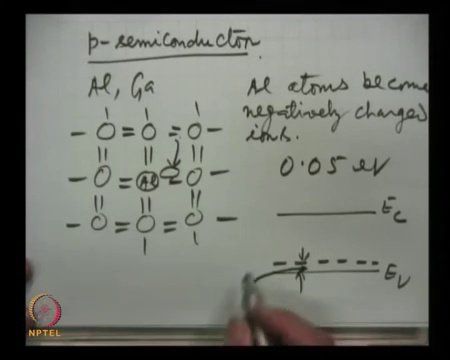 p-semiconductor.
Al, Ga
Al atoms become
negatively charged
ions.
0.05 eV
Al
Ec
Ev
NPTEL